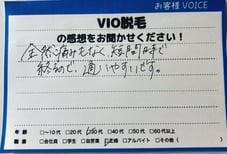 お客様 VOICE
VIO脱毛
の感想をお聞かせください！
全然痛みもなく、短時間で
終るので、通いやすいです。
年齢 □〜10代 □20代 30代 □40代 □50代 □60代以上
職業 □会社員 □学生 □自営業 主婦 □アルバイト □その他（　）